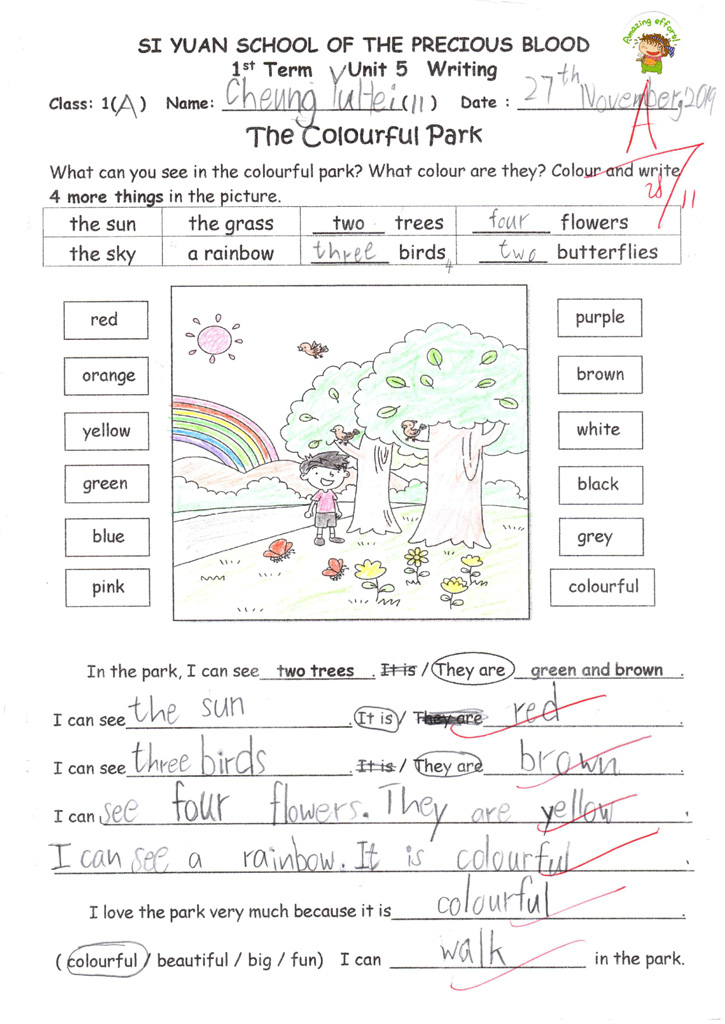 Amazing effort!
SI YUAN SCHOOL OF THE PRECIOUS BLOOD
1st Term Unit 5 Writing
Class: 1(A) Name: Cheung Yu Hei (11) Date : 27th November, 2019
A
The Colourful Park
What can you see in the colourful park? What colour are they? Colour and write
4 more things in the picture.
28/11
the sun the grass two trees four flowers
the sky a rainbow three birds two butterflies
4
red purple
orange brown
yellow white
green black
blue grey
pink colourful
In the park, I can see two trees . It is / They are green and brown .
I can see the sun . It is / They are red .
I can see three birds . It is / They are brown .
I can see four flowers. They are yellow .
I can see a rainbow. It is colourful .
I love the park very much because it is colourful .
( colourful / beautiful / big / fun) I can walk in the park.